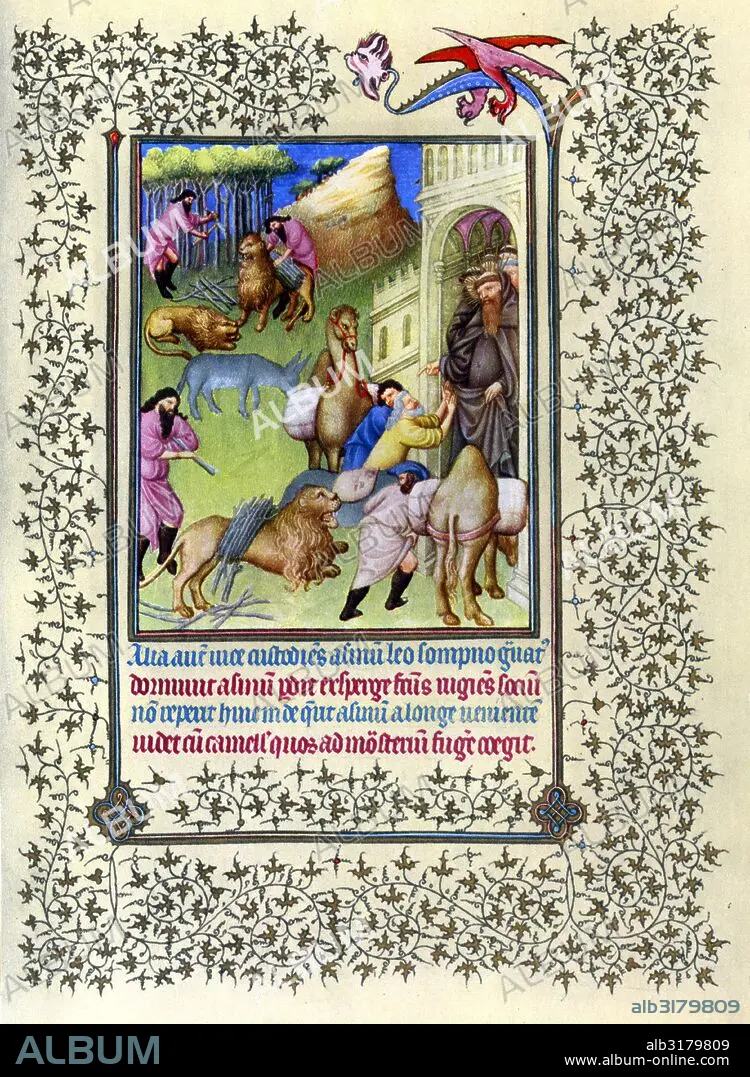 Alia autē vice custodiēs asinū leo sompno g̃uat⁹
dormiuit asinū ꝑdit exꝑgefc̄us rugiēs sociū
nō reperit hinc inde q̃rit asinū a longe uenientē
uidet cū camell' quos ad mōsteriū fug̃e coegit.
alb3179809
ALBUM
alb3179809
www.album-online.com